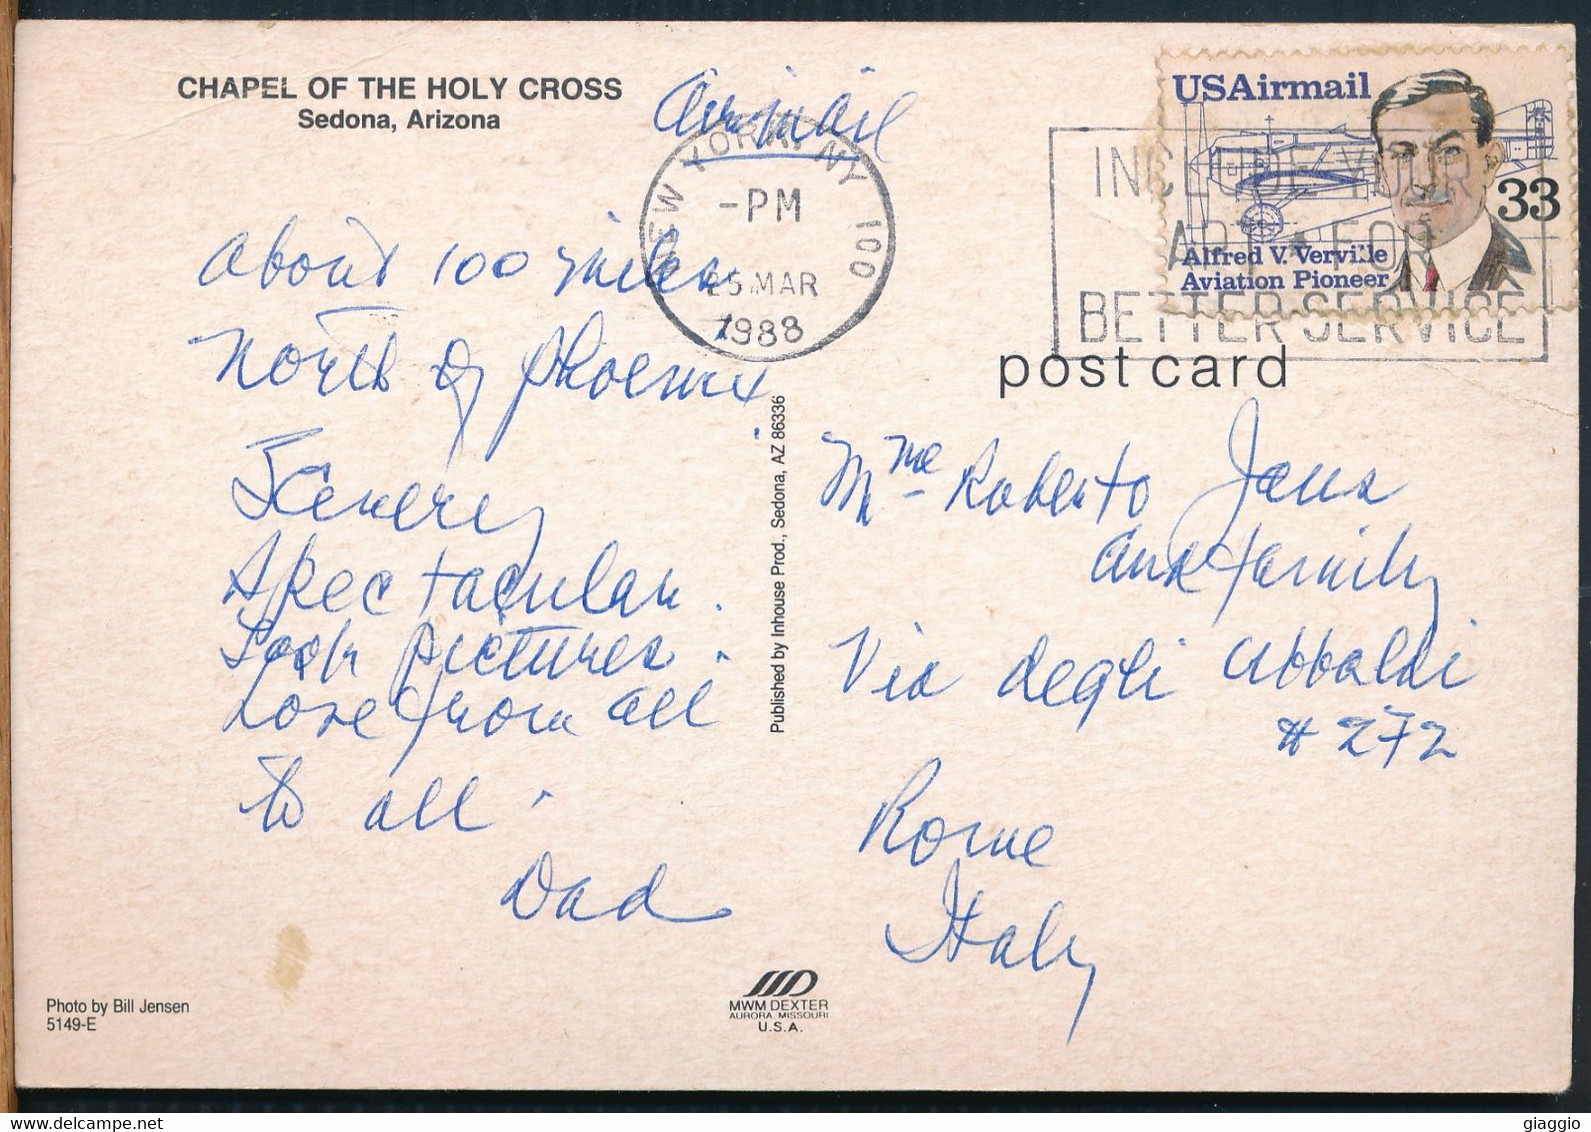 CHAPEL OF THE HOLY CROSS
Sedona, Arizona
Airmail
NEW YORK, NY 100
-PM
25 MAR
1988
USAirmail
33
Alfred V. Verville
Aviation Pioneer
INCLUDE YOUR
APT FOR
BETTER SERVICE
post card
About 100 miles
North of Phoenix.
Scenery
Spectacular.
Took pictures.
Love from all
to all.
Dad
Published by Inhouse Prod., Sedona, AZ 86336
Mme Roberto
and family
Via degli
# 272
Rome
Italy
Photo by Bill Jensen
5149-E
MWM DEXTER
AURORA, MISSOURI
U.S.A.
giaggio